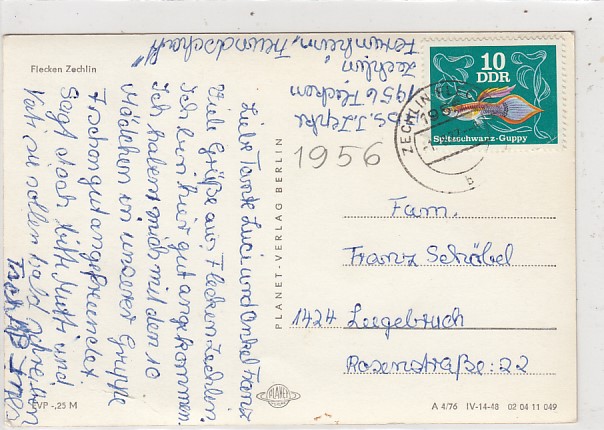 Flecken Zechlin
Abs. I. Zepke
1956 Flecken
Zechlin
Ferienheim "Freundschaft"
Liebe Tante Luci und Onkel Franz
Viele Grüße aus Flecken Zechlin.
Ich bin hier gut angekommen.
Ich habe mich mit den 10
Mädchen in unserer Gruppe
schon gut angefreundet.
Sagt doch bitte Mutti und
Vati sie sollen bald schreiben
Ines
EVP -,25 M
PLANET-VERLAG BERLIN
1956
10
DDR
Spitzschwanz-Guppy
ZECHLIN
1955
b
Fam.
Franz Schäbel
1424 Leegebruch
Rosenstraße 22
PLANET
A 4/76 IV-14-48 02 04 11 049